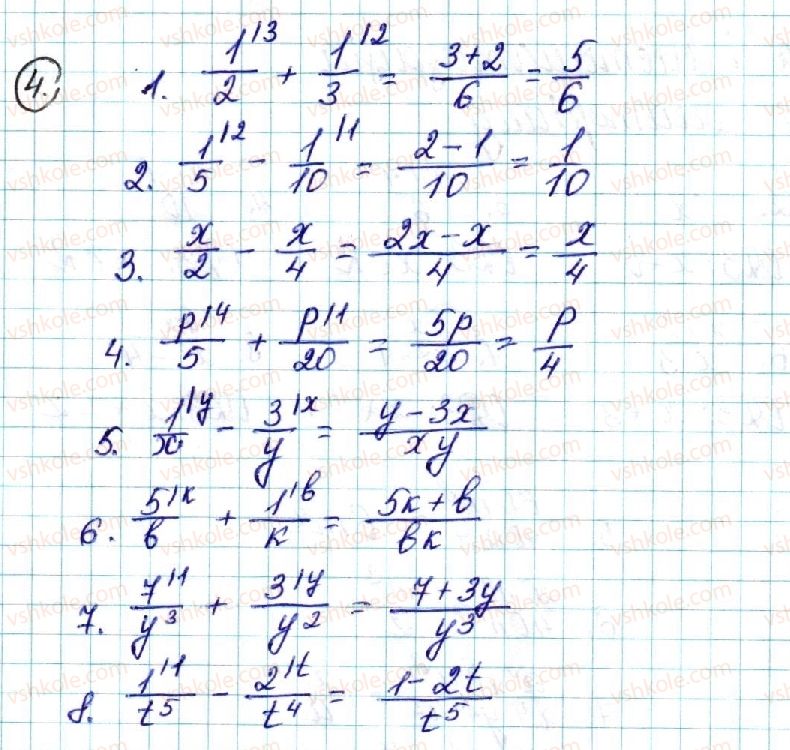 4.
1. 1^{\3}/2 + 1^{\2}/3 = (3+2)/6 = 5/6
2. 1^{\2}/5 - 1^{\1}/10 = (2-1)/10 = 1/10
3. x/2 - x/4 = (2x-x)/4 = x/4
4. p^{\4}/5 + p^{\1}/20 = 5p/20 = p/4
5. 1^{\y}/x - 3^{\x}/y = (y-3x)/xy
6. 5^{\к}/в + 1^{\в}/к = (5к+в)/вк
7. 7^{\1}/y³ + 3^{\y}/y² = (7+3y)/y³
8. 1^{\1}/t⁵ - 2^{\t}/t⁴ = (1-2t)/t⁵
vshkole.com